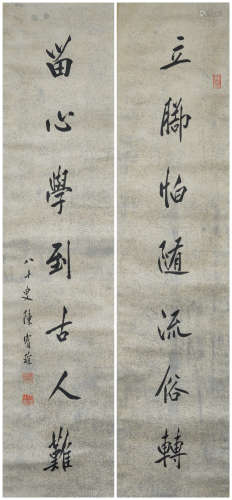 立腳怕隨流俗轉
留心學到古人難
八十叟陳寶琛